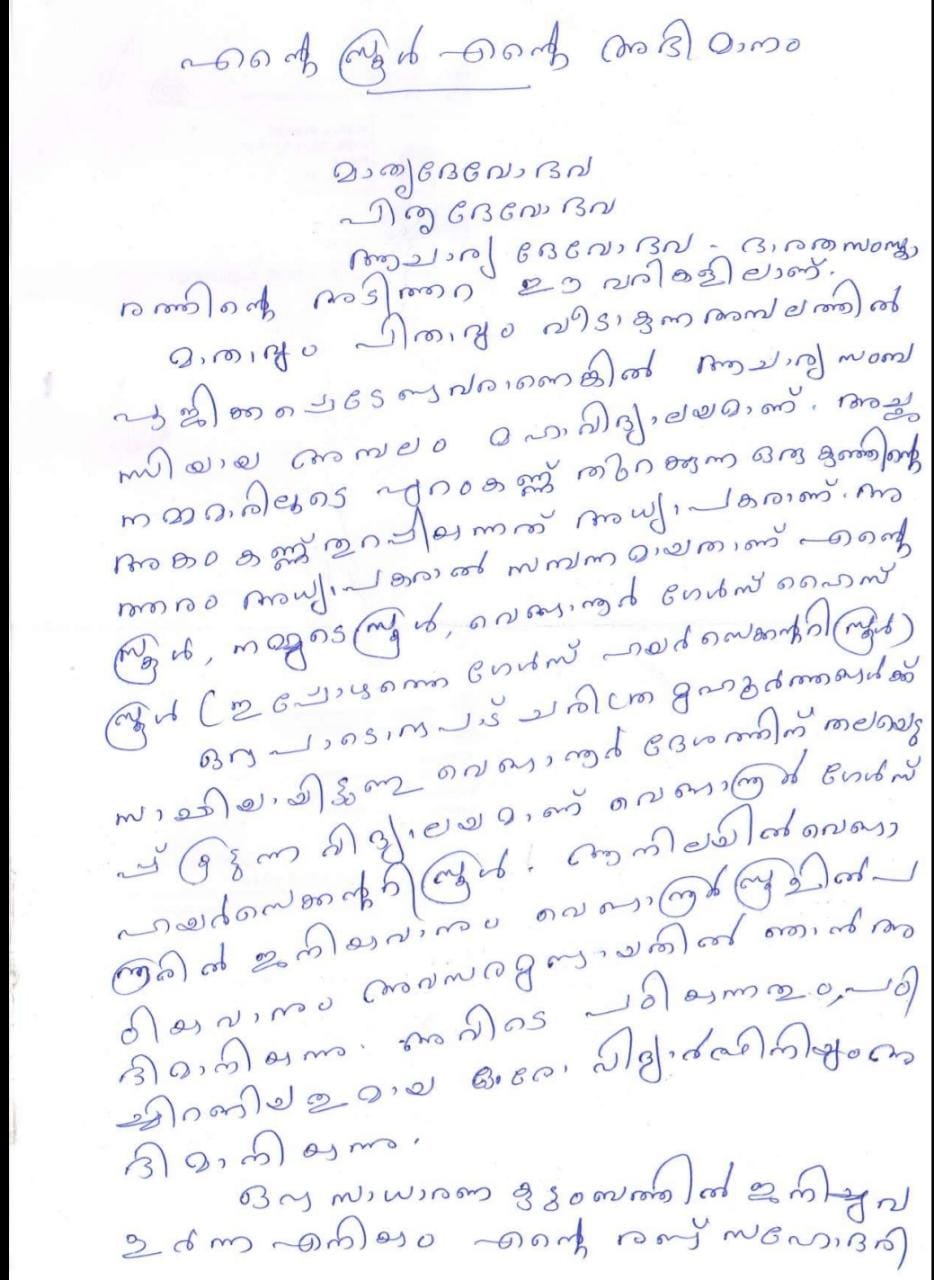 എന്റെ സ്കൂൾ എന്റെ അഭിമാനം
മാതൃദേവോ ഭവ
പിതൃ ദേവോ ഭവ
ആചാര്യ ദേവോ ഭവ - ഭാരതസംസ്കാ
രത്തിന്റെ അടിത്തറ ഈ വരികളിലാണ്.
മാതാവും പിതാവും വീടാകുന്ന അമ്പലത്തിൽ
പൂജിക്കപ്പെടേണ്ടവരാണെങ്കിൽ ആചാര്യ സംബ
ന്ധിയായ അമ്പലം മഹാവിദ്യാലയമാണ്. അച്ഛ
നമ്മമാരിലൂടെ പുറംകണ്ണ് തുറക്കുന്ന ഒരു കുഞ്ഞിന്റെ
അകം കണ്ണ് തുറപ്പിയ്ക്കുന്നത് അധ്യാപകരാണ്. അ
ത്തരം അധ്യാപകരാൽ സമ്പന്നമായതാണ് എന്റെ
സ്കൂൾ, നമ്മുടെ സ്കൂൾ, വെങ്ങാനൂർ ഗേൾസ് ഹൈസ്
സ്കൂൾ (ഇപ്പോഴത്തെ ഗേൾസ് ഹയർസെക്കന്ററി സ്കൂൾ)
ഒരുപാടൊരുപാട് ചരിത്ര മുഹൂർത്തങ്ങൾക്ക്
സാക്ഷിയായിട്ടുള്ള വെങ്ങാനൂർ ദേശത്തിന് തലയെടു
പ്പ് കൂട്ടുന്ന വിദ്യാലയമാണ് വെങ്ങാനൂർ ഗേൾസ്
ഹയർസെക്കന്ററി സ്കൂൾ. ആ നിലയിൽ വെങ്ങാ
നൂരിൽ ജനിയ്ക്കുവാനും വെങ്ങാനൂർ സ്കൂളിൽ പ
ഠിയ്ക്കുവാനും അവസരമുണ്ടായതിൽ ഞാൻ അ
ഭിമാനിയ്ക്കുന്നു. അവിടെ പഠിയ്ക്കുന്നതും, പഠി
ച്ചിറങ്ങിയതുമായ ഓരോ വിദ്യാർത്ഥിനിയും അ
ഭിമാനിയ്ക്കുന്നു.
ഒരു സാധാരണ കുടുംബത്തിൽ ജനിച്ചു വ
ളർന്ന എനിയ്ക്കും എന്റെ രണ്ട് സഹോദരി